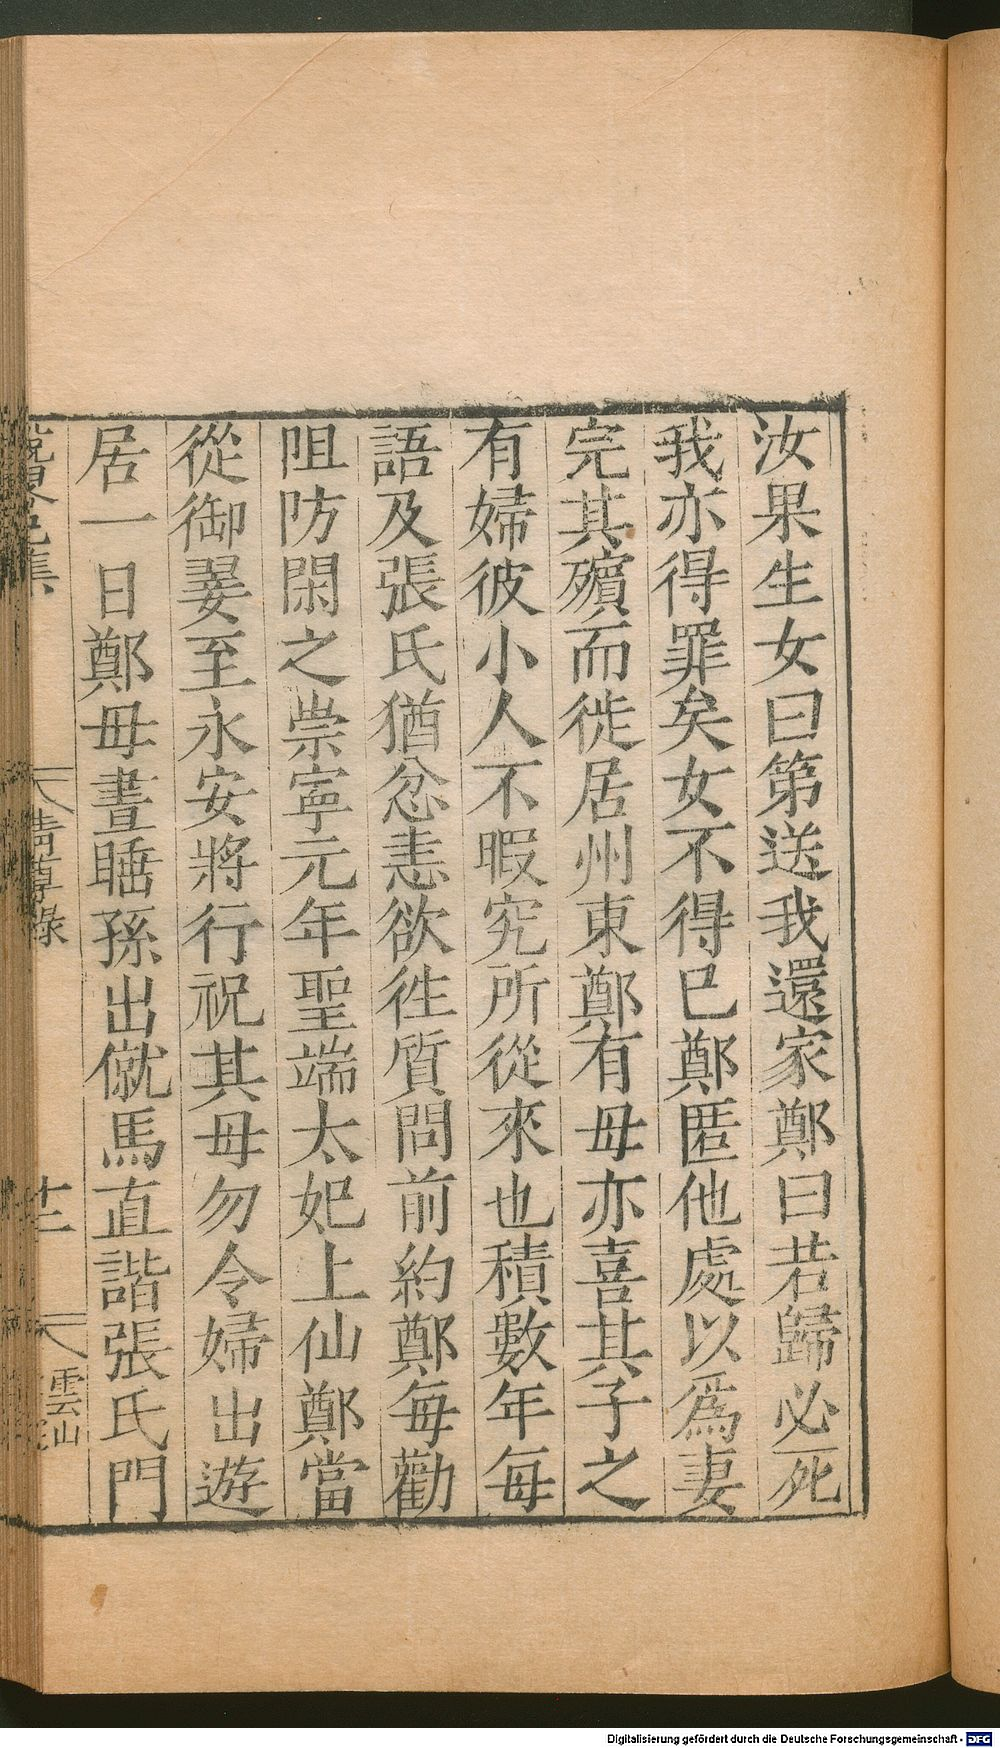 汝果生女曰第送我還家鄭曰若歸必死
我亦得罪矣女不得已鄭匿他處以爲妻
完其殯而徙居州東鄭有母亦喜其子之
有婦彼小人不暇究所從來也積數年每
語及張氏猶忿恚欲徃質問前約鄭每勸
阻防閑之崇寧元年聖端太妃上仙鄭當
從御翣至永安將行祝其母勿令婦出遊
居一日鄭母晝睡孫出僦馬直詣張氏門
清尊錄
十二
雲山
Digitalisierung gefördert durch die Deutsche Forschungsgemeinschaft - DFG